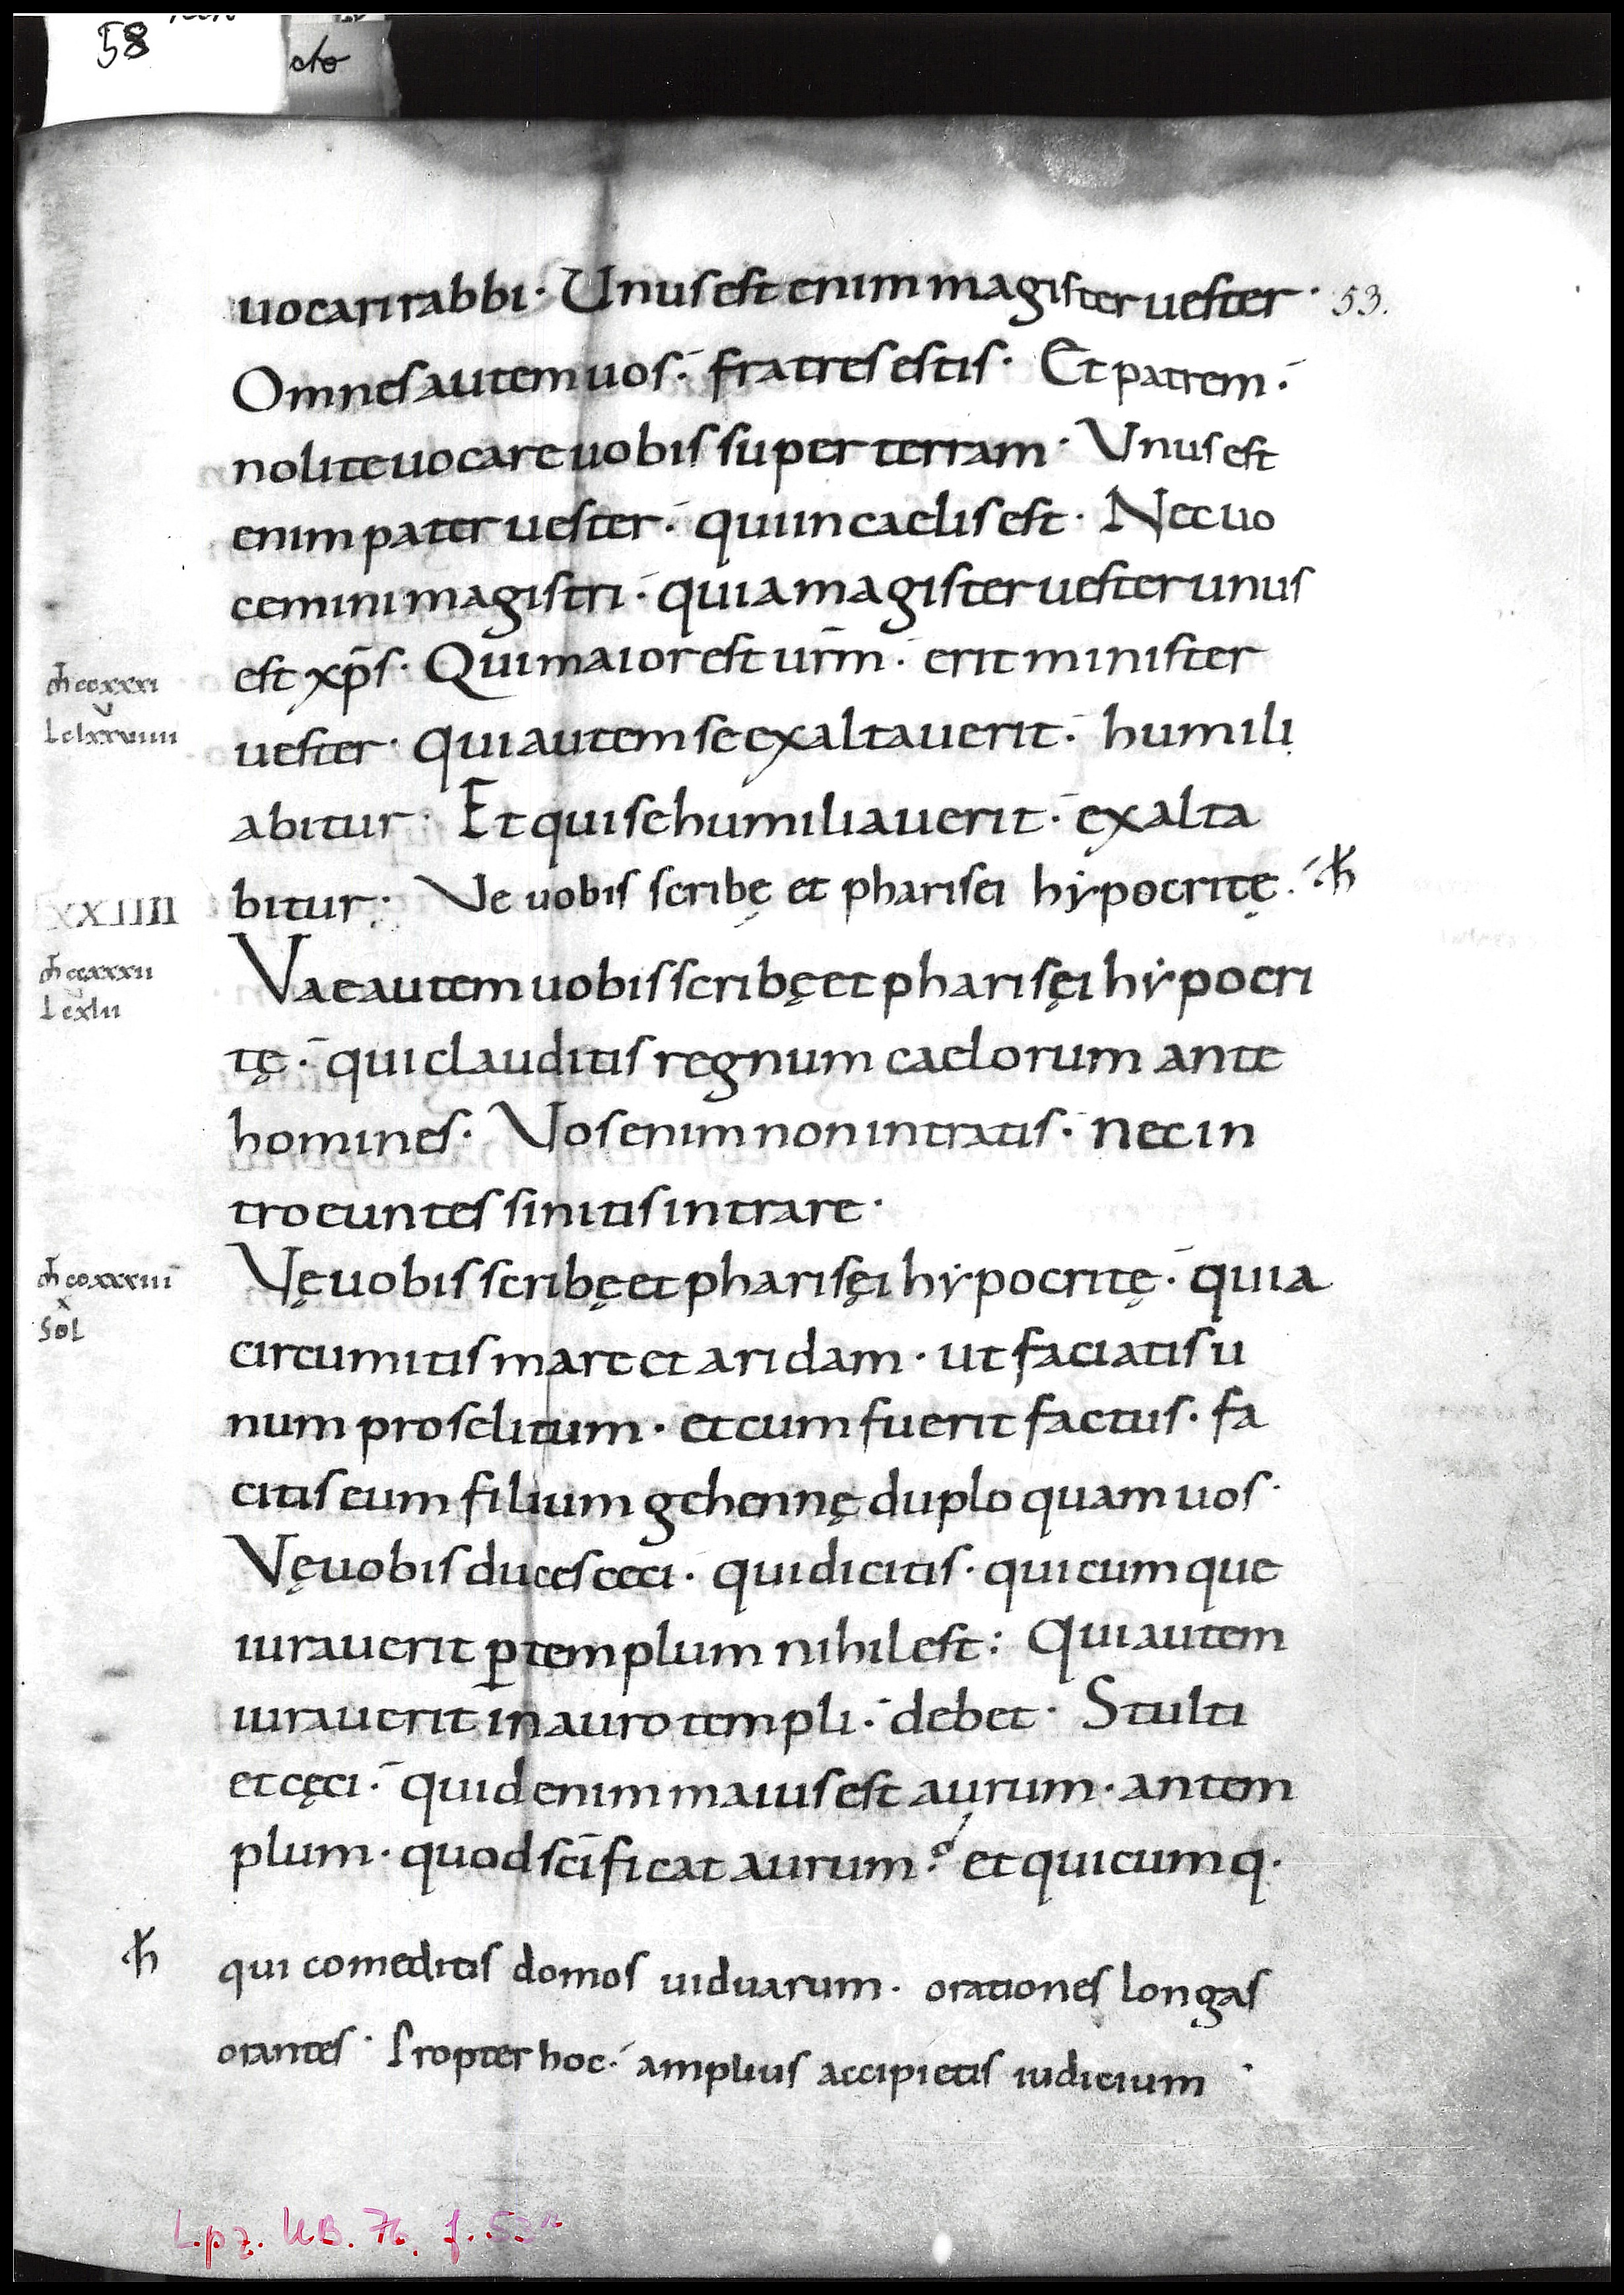 58
cto
uocari rabbi· Unus est enim magister uester· 53.
Omnes autem uos· fratres estis· Et patrem·
nolite uocare uobis super terram· Unus est
enim pater uester· qui in caelis est· Nec uo
cemini magistri· quia magister uester unus
est xp̄s· Qui maior est urm̄· erit minister
m̄ ccxxxi
L clxxviiii
uester· qui autem se exaltauerit· humili
abitur· Et qui se humiliauerit· exalta
XXIIII bitur· Ve uobis scribę et pharisei hẏpocritę·
m̄ ccxxxii
L cxlii
Vae autem uobis scribę et pharisęi hẏpocri
tę· qui clauditis regnum caelorum ante
homines· Vos enim non intratis· nec in
tro euntes sinitis intrare·
m̄ ccxxxiii
x
Sol
Vę uobis scribę et pharisęi hẏpocritę· quia
circumitis mare et aridam· ut faciatis u
num proselitum· et cum fuerit factus· fa
citis eum filium gehennę duplo quam uos·
Vę uobis duces ceci· qui dicitis· quicumque
iurauerit ꝑ templum nihil est: Qui autem
iurauerit in auro templi· debet· Stulti
et cęci· quid enim maius est aurum· an tem
plum· quod sc̄ificat aurum? et quicumq·
qui comeditis domos uiduarum· orationes longas
orantes· Propter hoc· amplius accipietis iudicium·
Lpz. UB. 76, f. 53r